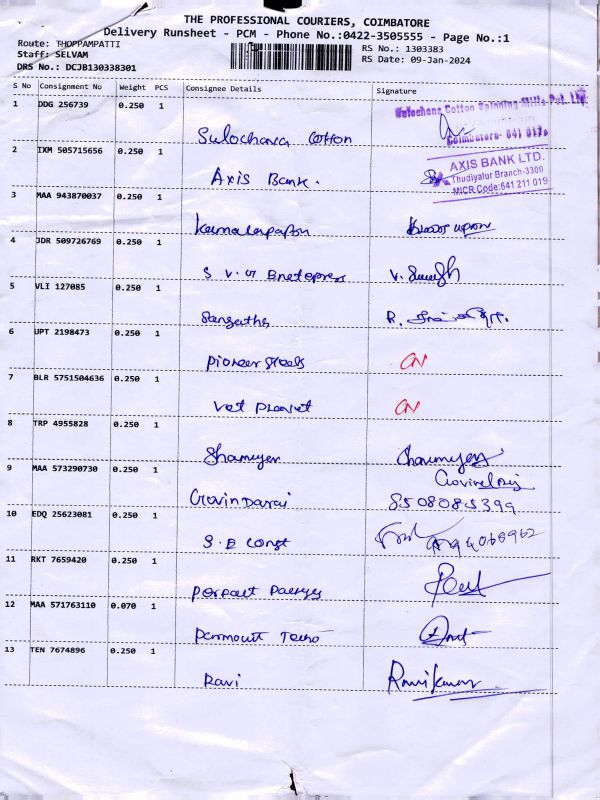 THE PROFESSIONAL COURIERS, COIMBATORE
Delivery Runsheet - PCM - Phone No.:0422-3505555 - Page No.:1
Route: THOPPAMPATTI
Staff: SELVAM
DRS No.: DCJB130338301
RS No.: 1303383
RS Date: 09-Jan-2024
S No Consignment No Weight PCS Consignee Details Signature
1 DDG 256739 0.250 1
Sulochana Cotton Spinning Mills Pvt. Ltd
Sulochana Cotton
Coimbatore- 641
2 IXM 505715656 0.250 1
AXIS BANK LTD.
Thudiyalur Branch-3309
MICR.Code:641 211 019
Axis Bank.
3 MAA 943870037 0.250 1
4 JDR 509726769 0.250 1
S V
V.
5 VLI 127085 0.250 1
Sangeetha
R.
6 UPT 2198473 0.250 1
Pioneer Steels
7 BLR 5751504636 0.250 1
Vet Planet
8 TRP 4955828 0.250 1
9 MAA 573290730 0.250 1
Govindaraj
8508085399
10 EDQ 25623081 0.250 1
S.B Const
11 RKT 7659420 0.250 1
12 MAA 571763110 0.070 1
13 TEN 7674896 0.250 1
Ravi Ravikumar